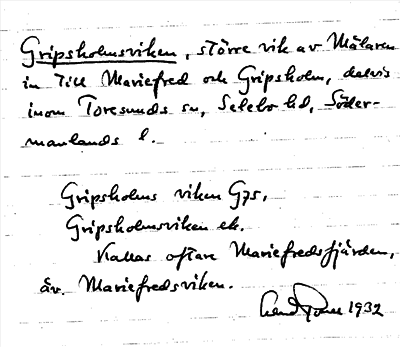 Gripsholmsviken, större vik av Mälaren
in till Mariefred och Gripsholm, delvis
inom Toresunds sn, Selebo hd, Söder-
manlands l.
Gripsholms viken G75.
Gripsholmsviken ek.
Kallas oftare Mariefredsfjärden,
äv. Mariefredsviken.
1932